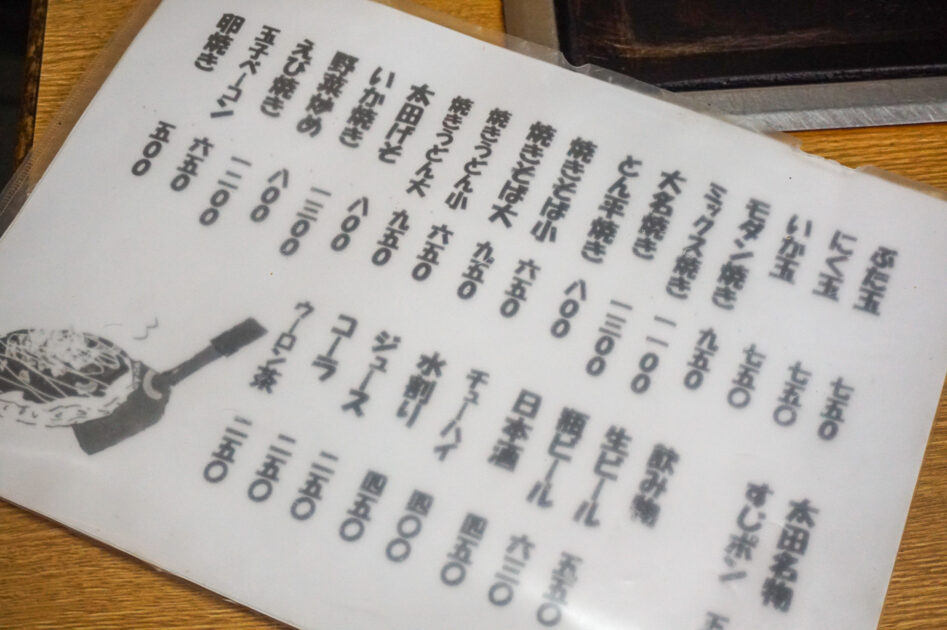 ぶた玉 七五〇
にく玉 七五〇
いか玉 七五〇
モダン焼き 九五〇
ミックス焼き 一一〇〇
大名焼き 一三〇〇
とん平焼き 八〇〇
焼きそば小 六五〇
焼きそば大 九五〇
焼きうどん小 六五〇
焼きうどん大 九五〇
太田げそ 八〇〇
いか焼き 一三〇〇
野菜炒め 八〇〇
えび焼き 一二〇〇
玉子ベーコン 六五〇
卵焼き 五〇〇
太田名物
すじポン 五
飲み物
生ビール 五五〇
瓶ビール 六三〇
日本酒 四五〇
チューハイ 四〇〇
水割り 四五〇
ジュース 二五〇
コーラ 二五〇
ウーロン茶 二五〇